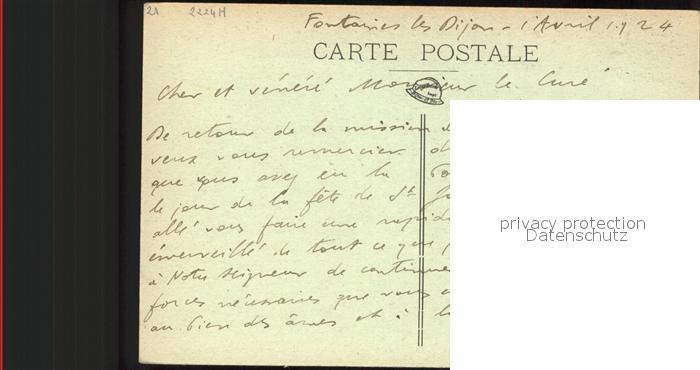 21 2224H
Fontaines les Dijon - 1 Avril 1924
CARTE POSTALE
Cher et vénéré Monsieur le Curé
De retour de la mission
veux vous remercier
que vous avez eu la
le jour de la fête de St
allé vous faire une rapide
émerveillé de tout ce que
à Notre Seigneur de continuer
forces nécessaires que vous
au bien des âmes et à
privacy protection
Datenschutz